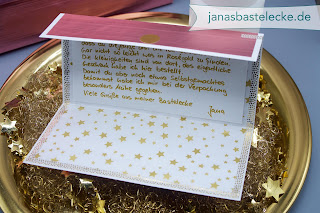 janasbastelecke.de
dass du die Farbe
Gar nicht so leicht was in Roségold zu finden.
Die Kleinigkeiten sind von dort, das eigentliche
Geschenk habe ich hier bestellt.
Damit du aber noch etwas Selbstgemachtes
bekommst habe ich mir bei der Verpackung
besonders Mühe gegeben.
Viele Grüße aus meiner Bastelecke
Jana